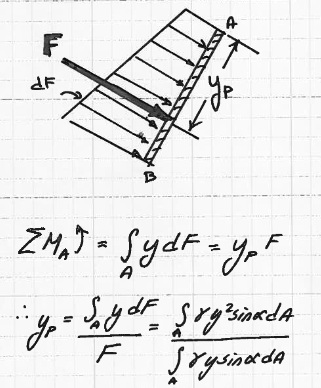 A
F
dF
yP
B
ΣM_A↰ = ∫_A y dF = y_P F
∴ y_P = ∫_A y dF / F = ∫_A γ y² sin α dA / ∫_A γ y sin α dA